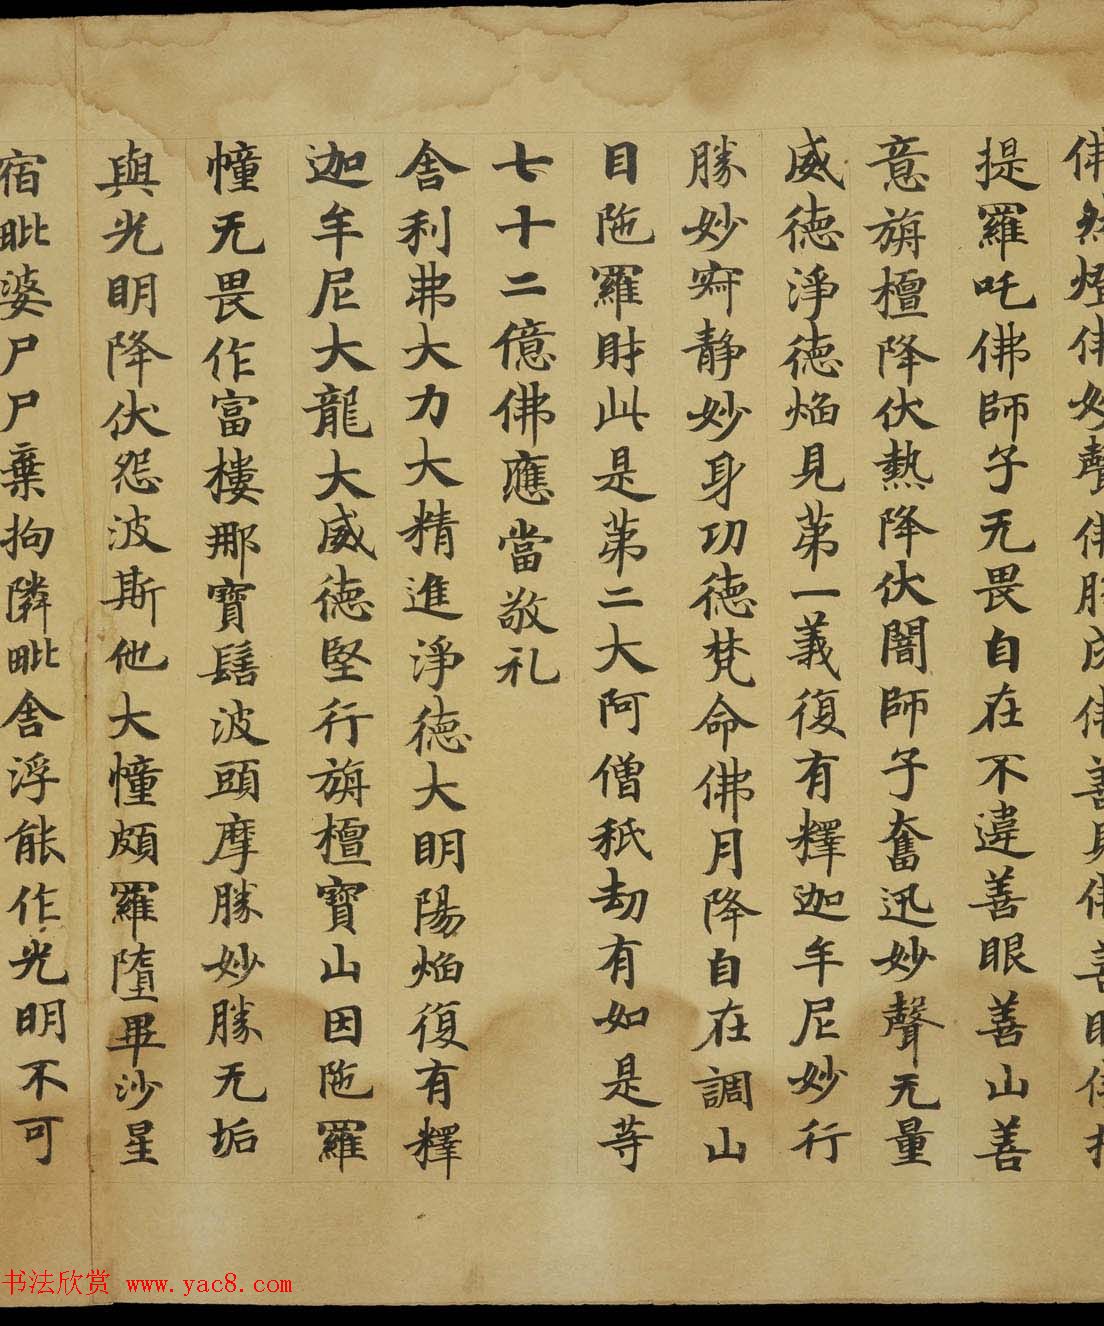 佛然燈佛妙聲佛勝成佛善見佛善眼佛提
提羅吒佛師子无畏自在不違善眼善山善
意旃檀降伏熱降伏闇師子奮迅妙聲无量
威德淨德焔見苐一義復有釋迦牟尼妙行
勝妙㝛静妙身功德梵命佛月降自在調山
目陁羅財此是苐二大阿僧秖劫有如是等
七十二億佛應當敬礼
舎利弗大力大精進淨德大明陽焔復有釋
迦牟尼大龍大威德堅行旃檀寶山因陁羅
幢无畏作富樓那寶髻波頭摩勝妙勝无垢
與光明降伏怨波斯他大幢頗羅墮畢沙星
宿毗婆尸尸棄拘隣毗舎浮能作光明不可
书法欣赏 www.yac8.com